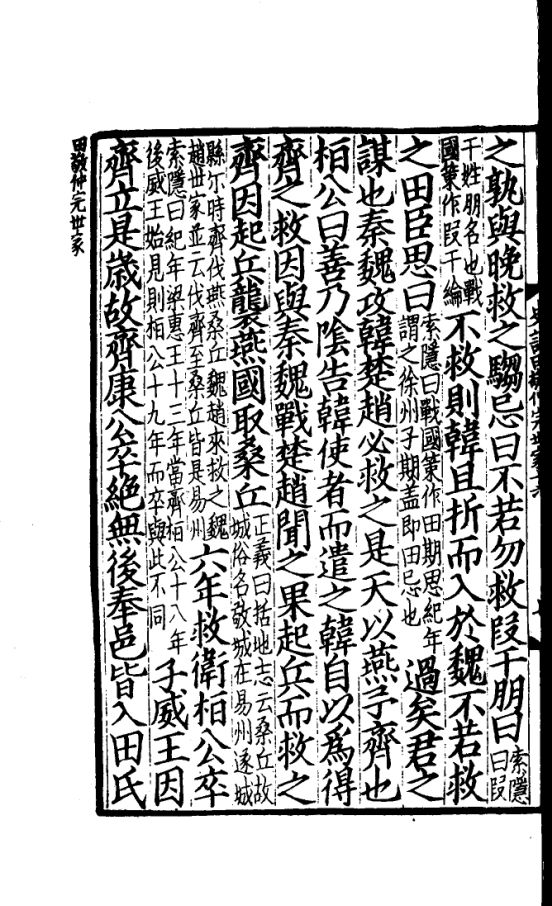 之孰與晚救之騶忌曰不若勿救叚干朋曰索隱曰叚
干姓朋名也戰國策作叚干綸不救則韓且折而入於魏不若救
之田臣思曰索隱曰戰國策作田期思紀年謂之徐州子期盖即田忌也過矣君之
謀也秦魏攻韓楚趙必救之是天以燕予齊也
桓公曰善乃陰告韓使者而遣之韓自以爲得
齊之救因與秦魏戰楚趙聞之果起兵而救之
齊因起兵襲燕國取桑丘正義曰括地志云桑丘故城俗名敬城在易州遂城
縣尒時齊伐燕桑丘魏趙來救之魏趙世家並云伐齊至桑丘皆是易州六年救衛桓公卒
索隱曰紀年梁惠王十三年當齊桓公十八年後威王始見則桓公十九年而卒與此不同子威王因
齊立是歲故齊康公卒絕無後奉邑皆入田氏
田敬仲完世家